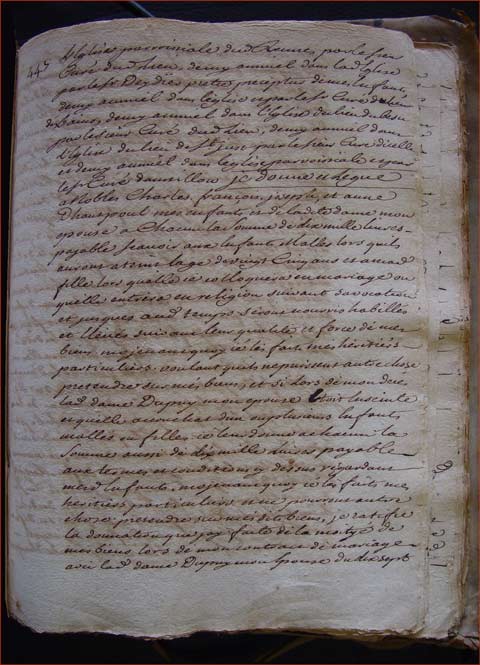 445
L'Eglise parroissiale dud Rennes, par le sieur
Curé dud Lieu, demy annuel dans lad Eglise
par le Sr Deydier pretre precepteur de mes Enfants,
demy annuel dans l'eglise par le Sr Curé du lieu
de, demy annuel dans l'Eglise du lieu du
par le sieur Curé dud Lieu, demy annuel dans
L'Eglise du lieu de St just par le sieur Curé d'icelle
et demy annuel dans l'eglise parroissiale par
le Sr Curé je donne et Legue
a Nobles Charles, françois, joseph, et anne
D'hautpoul mes enfants, et de lade dame mon
epouse a Chacun la somme de dix mille livres
payable scavoir aux Enfants Malles lors quils
auront atteint lage de vingt Cinq ans et a mad
fille lors quelle se colloquera en mariage ou
quelle entrera en religion suivant sa vocation
et jusques aud temps seront nourris habillés
et Elevés suivant leur qualité et force de mes
biens, moyenant quoy je les fait mes heritiers
particuliers voulant quils ne puissent autre chose
pretendre sur mes biens, et si lors de mon deces
lade dame Dupuy mon epouse Etoit Enceinte
et quelle accouchat d'un ou plusieurs Enfants
malles ou filles je leur donne a chacun la
somme aussi de dix mille livres payable
aux termes et conditions cy dessus regardant
mesd Enfants, moyenant quoy je les fait mes
heritiers particuliers sans pouvoir autre
chose pretendre sur mesdits biens, je ratifie
la donnation que j'ay faite de la moitye de
mes biens lors de mon contrat de mariage
avec lade dame Dupuy mon Epouse du dix sept